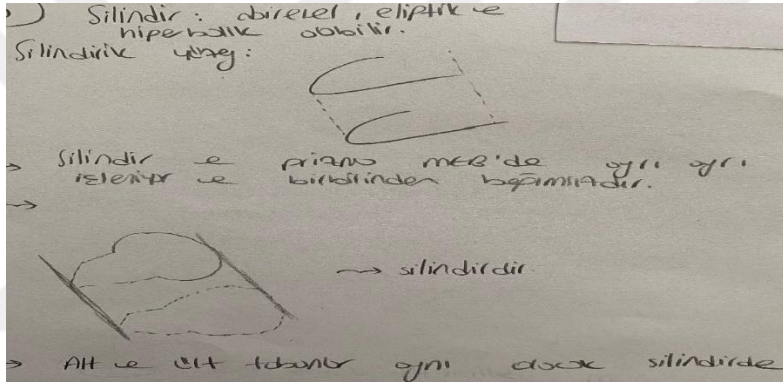 Silindir : dairesel, eliptik ve
hiperbolik olabilir.
Silindirik yüzey :
→ Silindir ve prizma MEB'de ayrı ayrı
işleniyor ve birbirinden bağımsızdır.
→
→ silindirdir.
→ Alt ve üst tabanlar aynı olacak silindirde